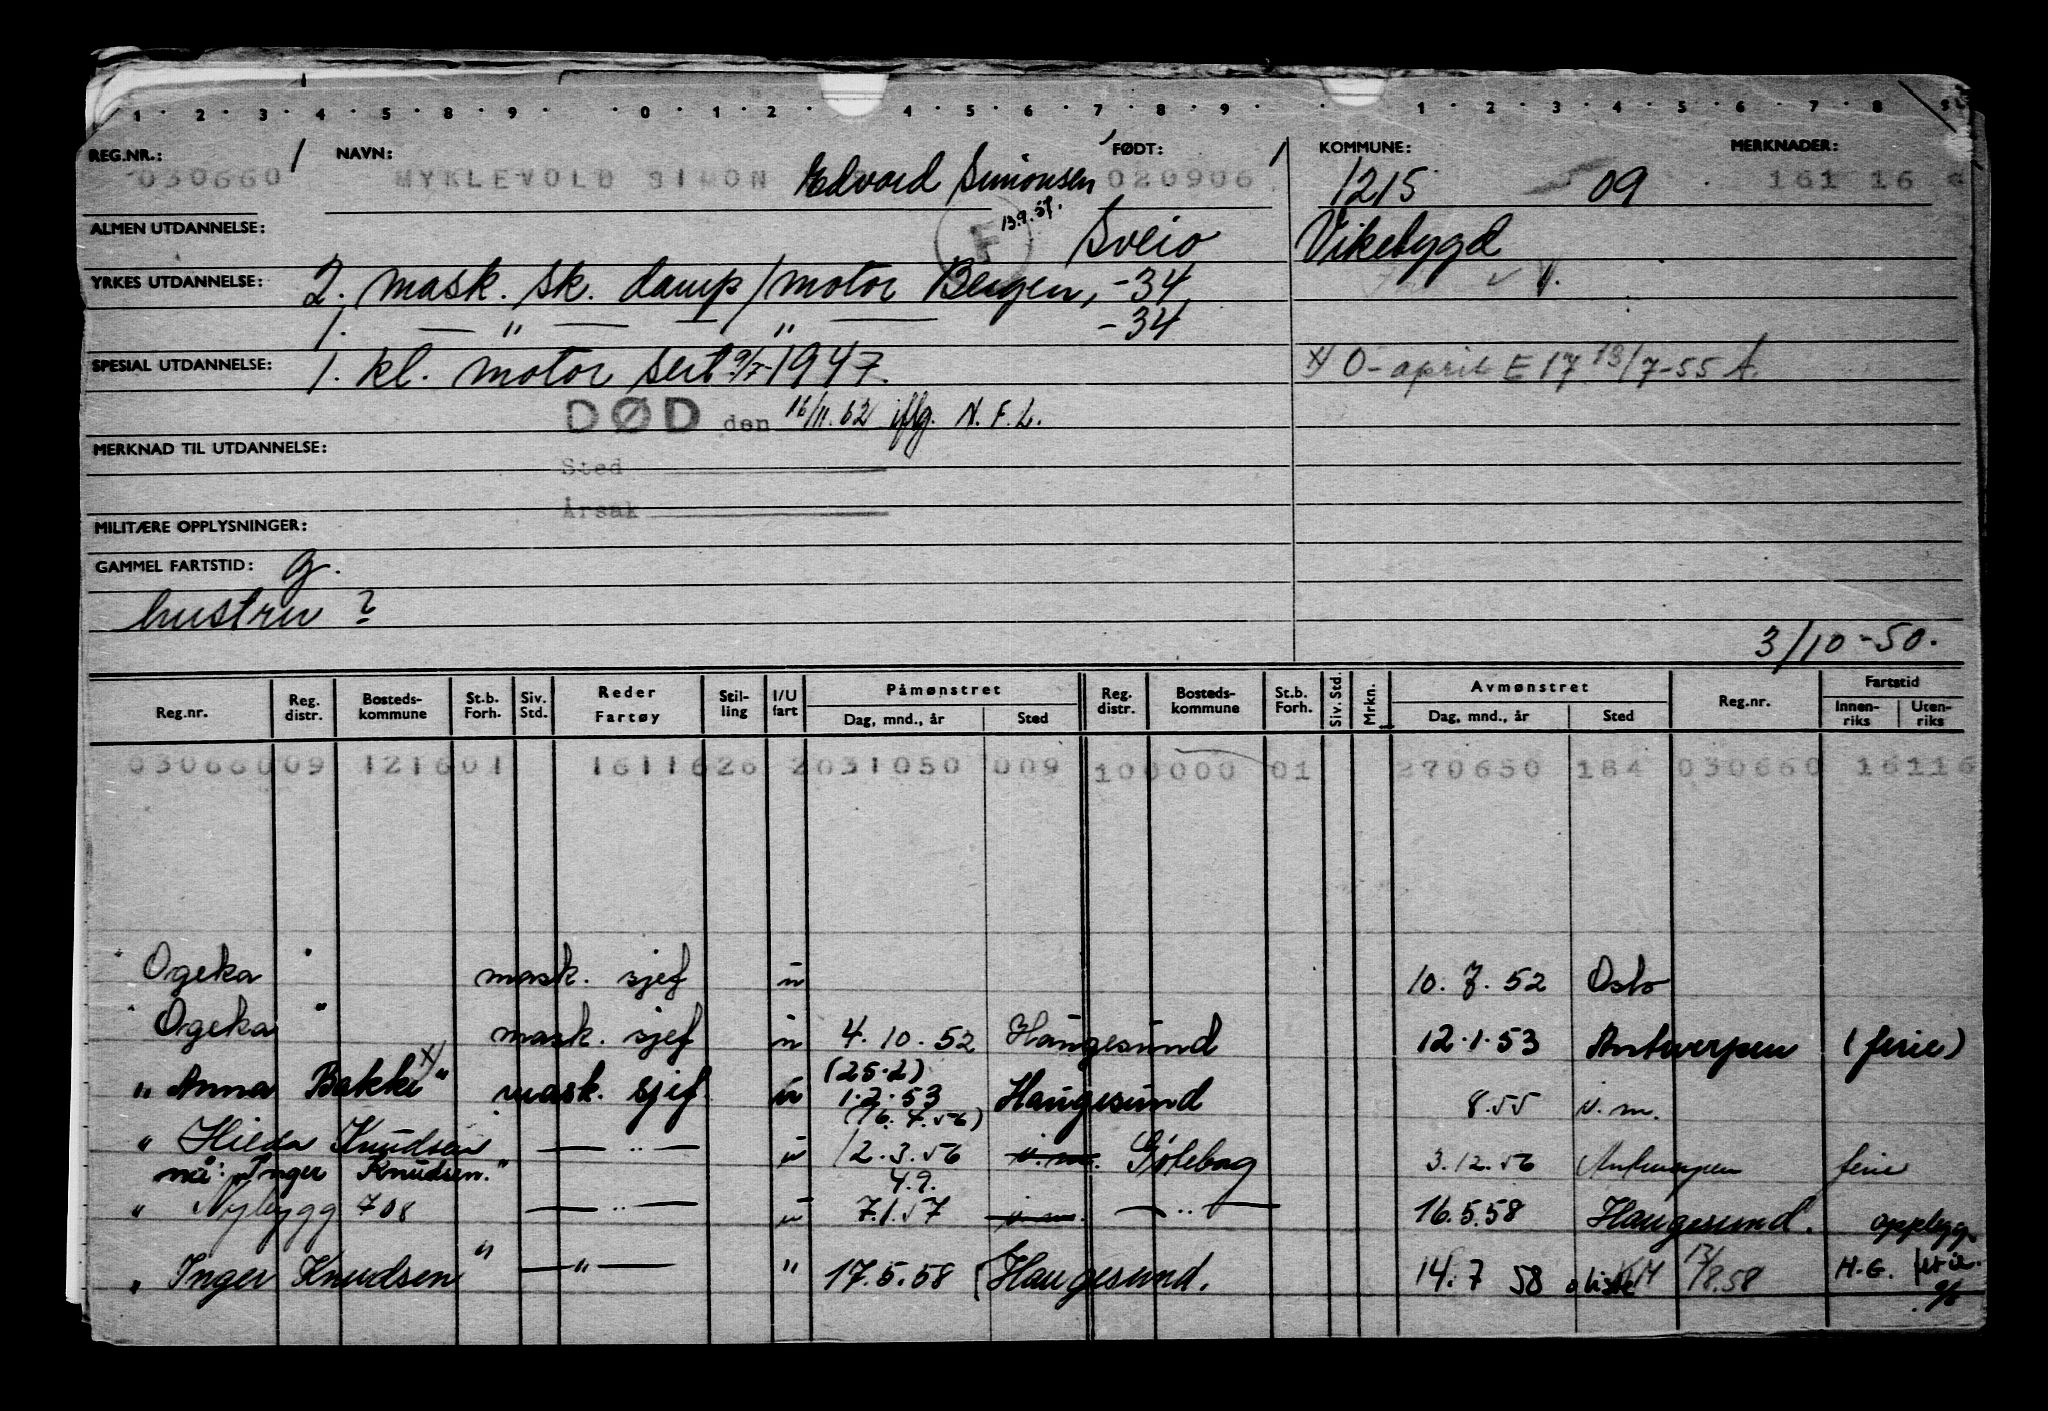 1 2 3 4 5 8 9 0 1 2 4 5 6 7 8 9 1 2 3 4 5 6 7 8 9
REG.NR.: NAVN: FØDT: KOMMUNE: MERKNADER:
030660 MYKLEVOLD SIMON Edvard Simonsen 020906 1215 09 161 16
13.9.57.
F
ALMEN UTDANNELSE: Sveio Vikebygd
YRKES UTDANNELSE: 2. mask. sk. damp/motor Bergen, -34
1. — " — — " — -34
SPESIAL UTDANNELSE: 1. kl. motor sert 9/7-1947. x) O-april E 17 13/7-55 A.
DØD den 16/11.62 iflg. N.F.L.
MERKNAD TIL UTDANNELSE: Sted
Årsak
MILITÆRE OPPLYSNINGER:
GAMMEL FARTSTID: g.
hustru ?
3/10-50.
Reg.nr. Reg. distr. Bosteds-kommune St.b. Forh. Siv. Std. Reder Fartøy Stil-ling I/U fart Påmønstret Dag, mnd., år Sted Reg. distr. Bosteds-kommune St.b. Forh. Siv. Std. Mrkn. Avmønstret Dag, mnd., år Sted Reg.nr. Fartstid Innen-riks Uten-riks
03066009 121601 1611626 2031050 009 100000 01 270650 184 030660 16116
" Ogeka " mask. sjef u 10. 7. 52 Oslo
" Ogeka " mask. sjef u 4. 10. 52 Haugesund 12.1.53 Antwerpen (ferie)
(25.2)
" Anna Bakke x) " mask. sjef u 1.2.53 Haugesund 8.55 u.m.
(16.4.56)
" Hilda Knudsen — .. — u 12.3.56 u.m. Gøteborg 3.12.56 Antwerpen ferie
nå: "Inger Knudsen."
4.9.
" Nybygg 708 — .. — u 7.1.57 u.m. — .. — 16.5.58 Haugesund. oppbygg.
" Inger Knudsen " — " — " 17.5.58 Haugesund. 14.7 58 13/8.58 H.G. ferie.